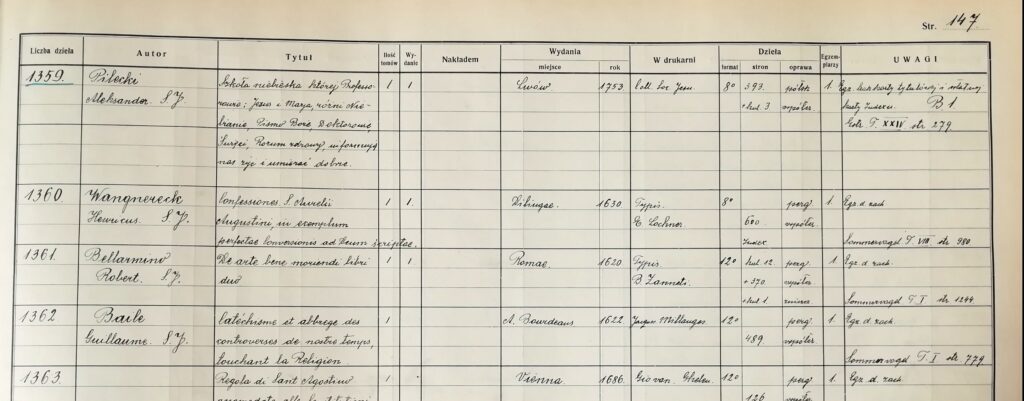 Str. 147
Liczba dzieła Autor Tytuł Ilość tomów Wydanie Nakładem Wydania miejsce rok W drukarni Dzieła format stron oprawa Egzemplarzy UWAGI
1359. Pilecki Szkoła niebieska której Profeso- 1 1 Lwów 1753 Coll. Soc Jesu 8° 393. półsk. 1.
Aleksander. S.J. rowie: Jezus i Marja, różni Nie- + kul. 3 współcz. B 1
bianie, Pismo Boże, Doktorowie, Estr. T. XXIV str 279
Święci, Rozum zdrowy, informują
nas żyć i umierać dobrze.
1360. Wangnereck Confessiones S. Aurelii 1 1. Dilingae. 1630 Typis. 8° perg. 1. Egz. d. zach
Henricus. S.J. Augustini, in exemplum C. Lochner. 600 współcz.
perfectae Conversiones ad Deum scriptae. Index Sommervogel T. VIII str 980
1361. Bellarmino De arte bene moriendi libri 1 1 Romae. 1620 Typis 12° + kul 12. perg. 1. Egz d. zach.
Robert. S.J. duo B. Zannetti. + 370. współcz.
+ kul 1. Sommervogel T. I str 1244
1362 Baile Catéchisme et abbrege des 1 A. Bourdeaus 1622. Jacques Millanges. 12° perg. 1. Egz. d. zach.
Guillaume. S.J. controverses de nostre temps, 489. współcz
touchant la Religion Sommervogel T. I str. 779
1363. Regola di Sant Agostino 1 Vienna. 1686. Giovan. Ghelen. 12° perg. 1. Egz. d. zach
126